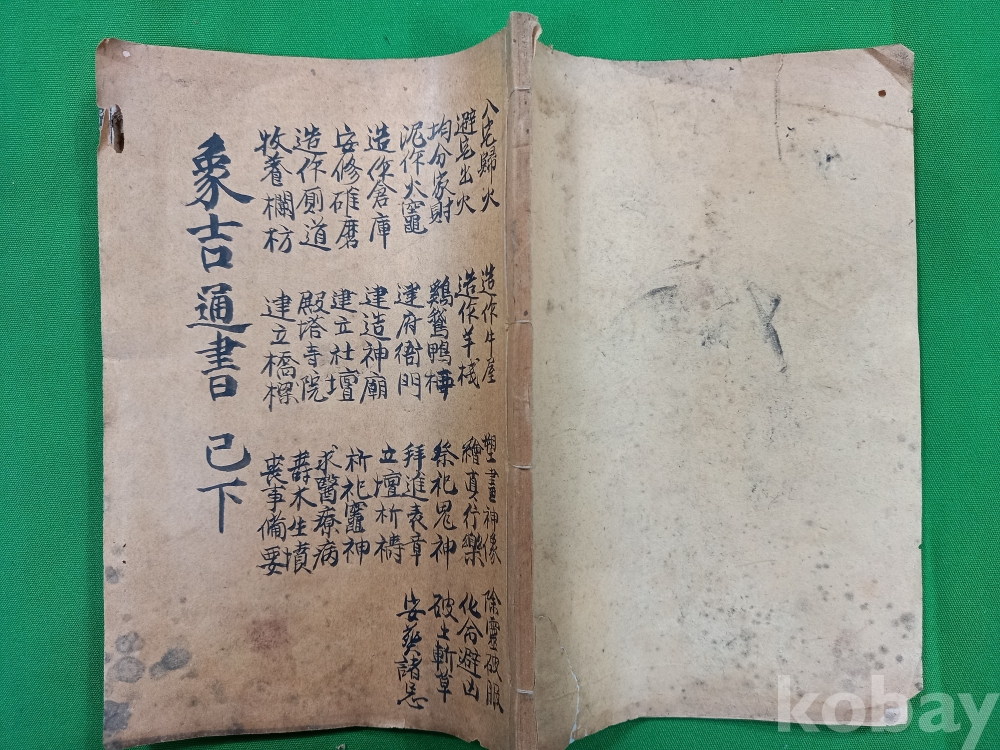 入宅歸火
避宅出火
均分家財
泥作火竈
造作倉庫
安修碓磨
造作厠道
牧養欄枋
造作牛屋
造作羊栈
鷄鵞鴨栖
建府衙門
建造神廟
建立社壇
殿塔寺院
建立橋樑
塑畫神像
繪真行樂
祭祀鬼神
拜進表章
立壇祈禱
祈祀竈神
求醫療病
壽木生墳
喪事備要
除靈破服
化命避凶
破土斬草
安葬諸忌
象吉通書 己下
kobay